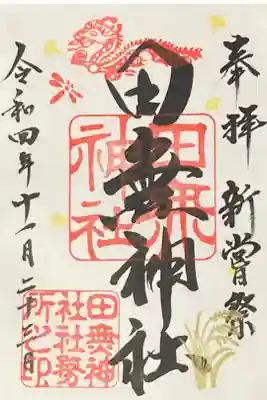 奉拝 新嘗祭
田無神社
田無
神社
令和四年十一月二十三日
田無神
社社務
所之印